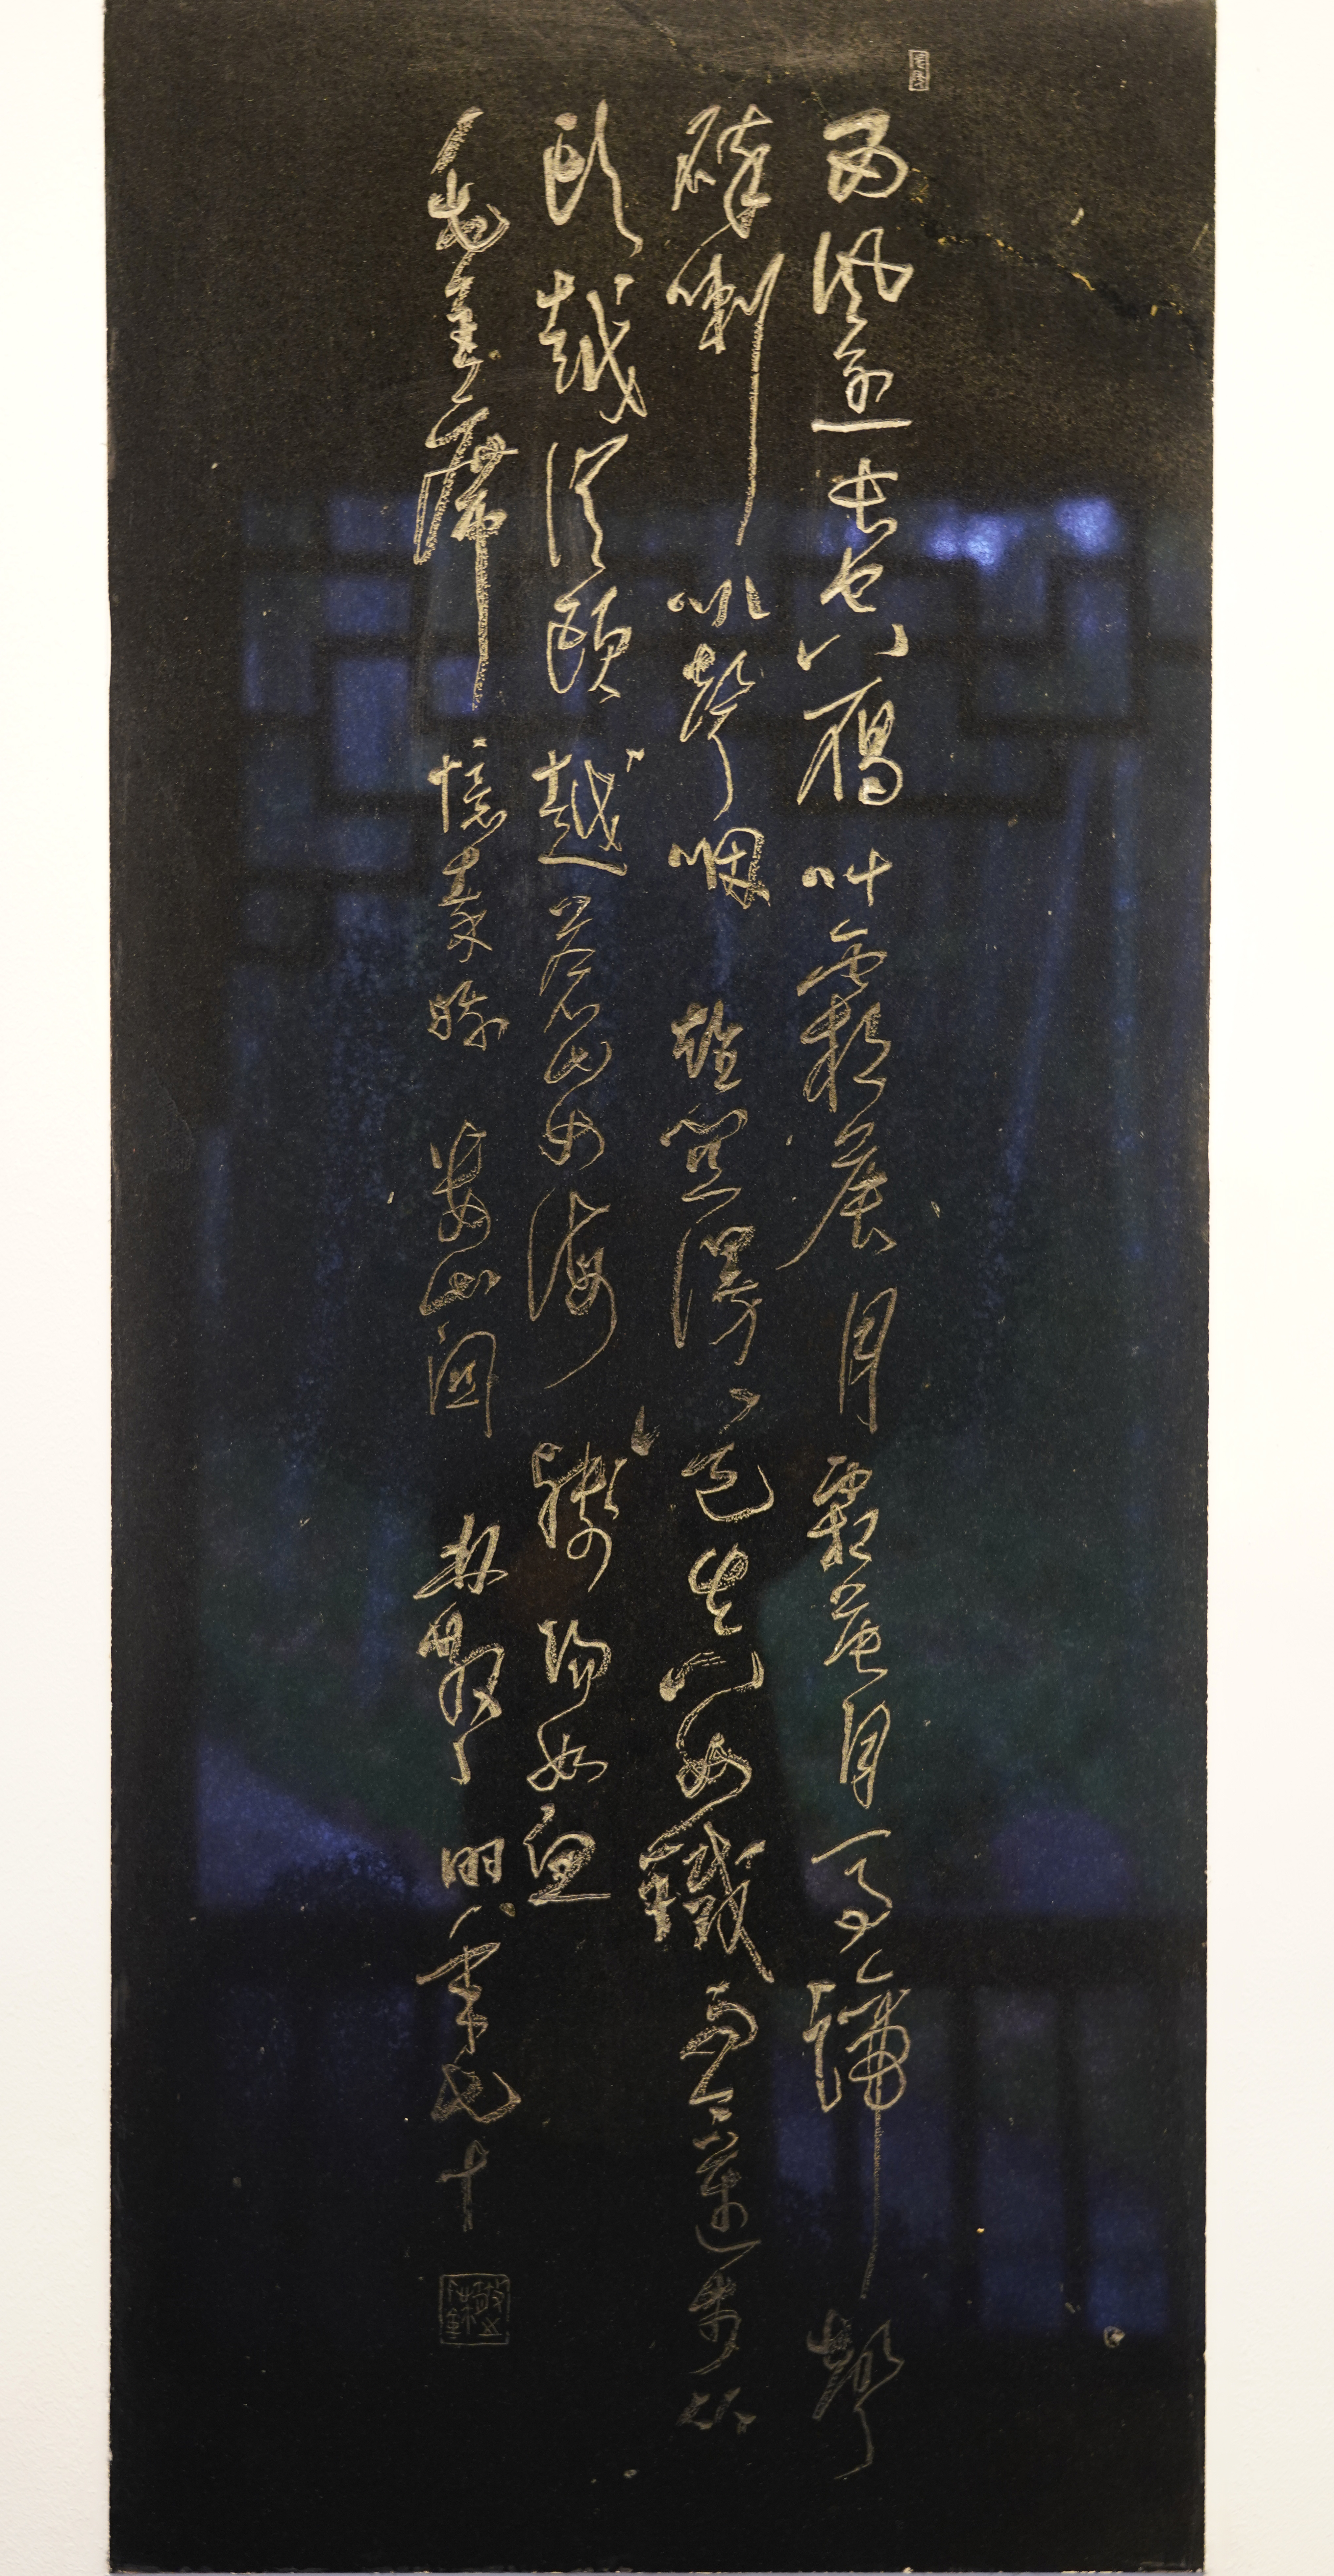 西風烈長空雁叫霜晨月霜晨月馬蹄聲
碎喇叭聲咽雄關漫道真如鐵而今邁步從
頭越從頭越蒼山如海殘陽如血
毛主席憶秦娥婁山關林散年七十